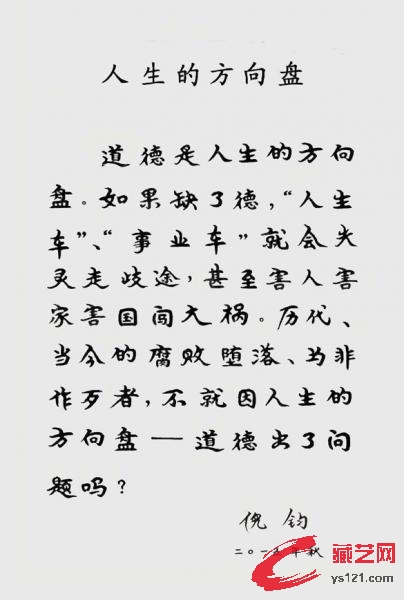 人生的方向盘
道德是人生的方向
盘。如果缺了德，“人生
车”、“事业车”就会失
灵走歧途，甚至害人害
家害国闯大祸。历代、
当今的腐败堕落、为非
作歹者，不就因人生的
方向盘——道德出了问
题吗？
倪钧
二〇一五年秋
藏艺网
ys121.com